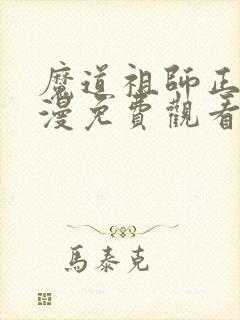 魔道祖師正
漫免費觀看
馬泰克